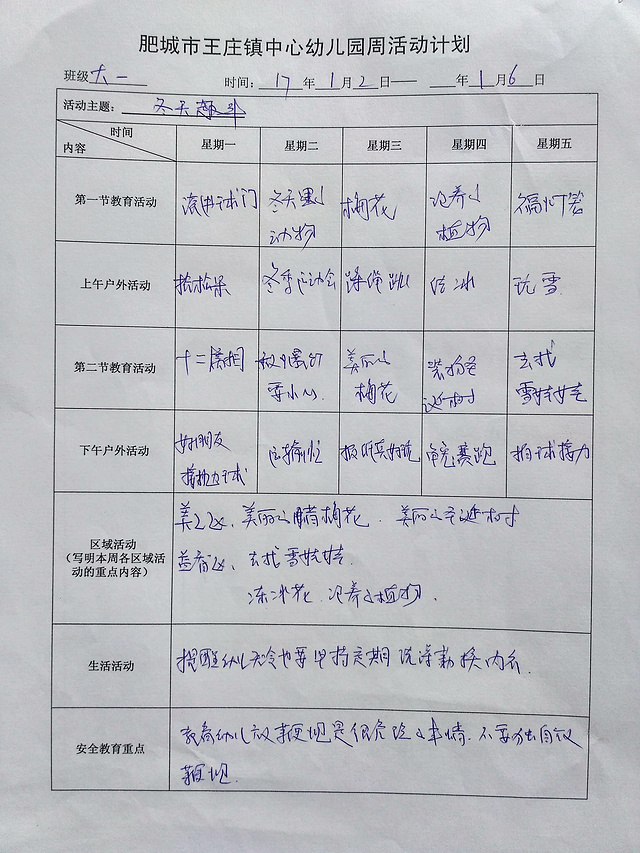 肥城市王庄镇中心幼儿园周活动计划
班级 大一 时间: 17 年 1 月 2 日—— 年 1 月 6 日
活动主题: 冬天趣事
时间
内容
星期一 星期二 星期三 星期四 星期五
第一节教育活动 滚球球门 冬天里的动物 梅花 泥养的植物
上午户外活动 捡松果 冬季运动会 跳绳跳 玩雪
第二节教育活动 十二属相 放爆竹要小心 美丽的梅花 装扮圣诞树 去找雪娃娃
下午户外活动 好朋友接力球 运输忙 竞赛跑 拍球接力
区域活动
(写明本周各区域活
动的重点内容)
美工区、美丽的腊梅花、美丽的圣诞树
益智区、去找雪娃娃
冻冰花、植物.
生活活动 提醒幼儿天冷也要坚持定期洗澡勤换内衣.
安全教育重点 教育幼儿放鞭炮是很危险的事情.不要独自放
鞭炮.